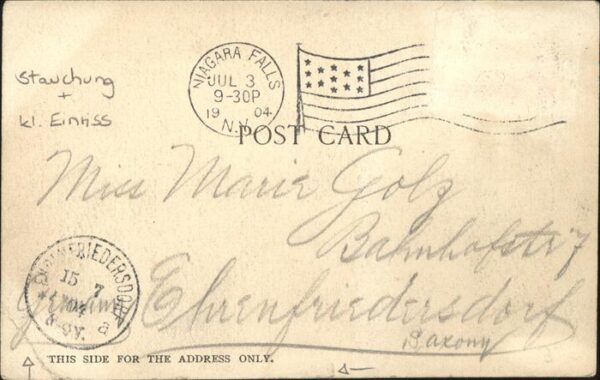 Stauchung
+
kl. Einriss
NIAGARA FALLS
JUL 3
9-30P
1904
N.Y.
POST CARD
Miss Marie Golz
Bahnhofstr 7
Germany Ehrenfriedersdorf
Saxony
EHRENFRIEDERSDORF
15 7
04
a
THIS SIDE FOR THE ADDRESS ONLY.